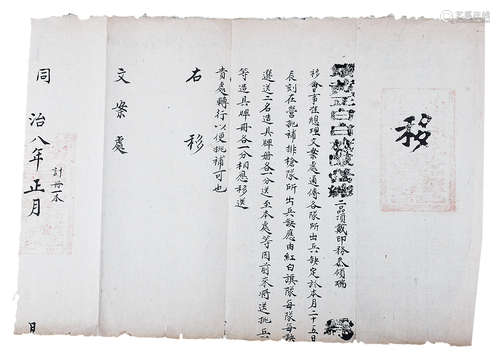 移
二品頂戴印務叅領瑞
移會事准總理文案處通傳各隊所出兵缺定於本月二十五日
辰刻在營挑補排槍隊所出兵缺應由紅白旗隊每隊每缺
選送二名造具牌冊各一分送至本處等因前來將送挑兵
等造具牌冊各一分相應移送
貴處轉行以便挑補可也
右移
文案處
計冊本
同治八年正月
日